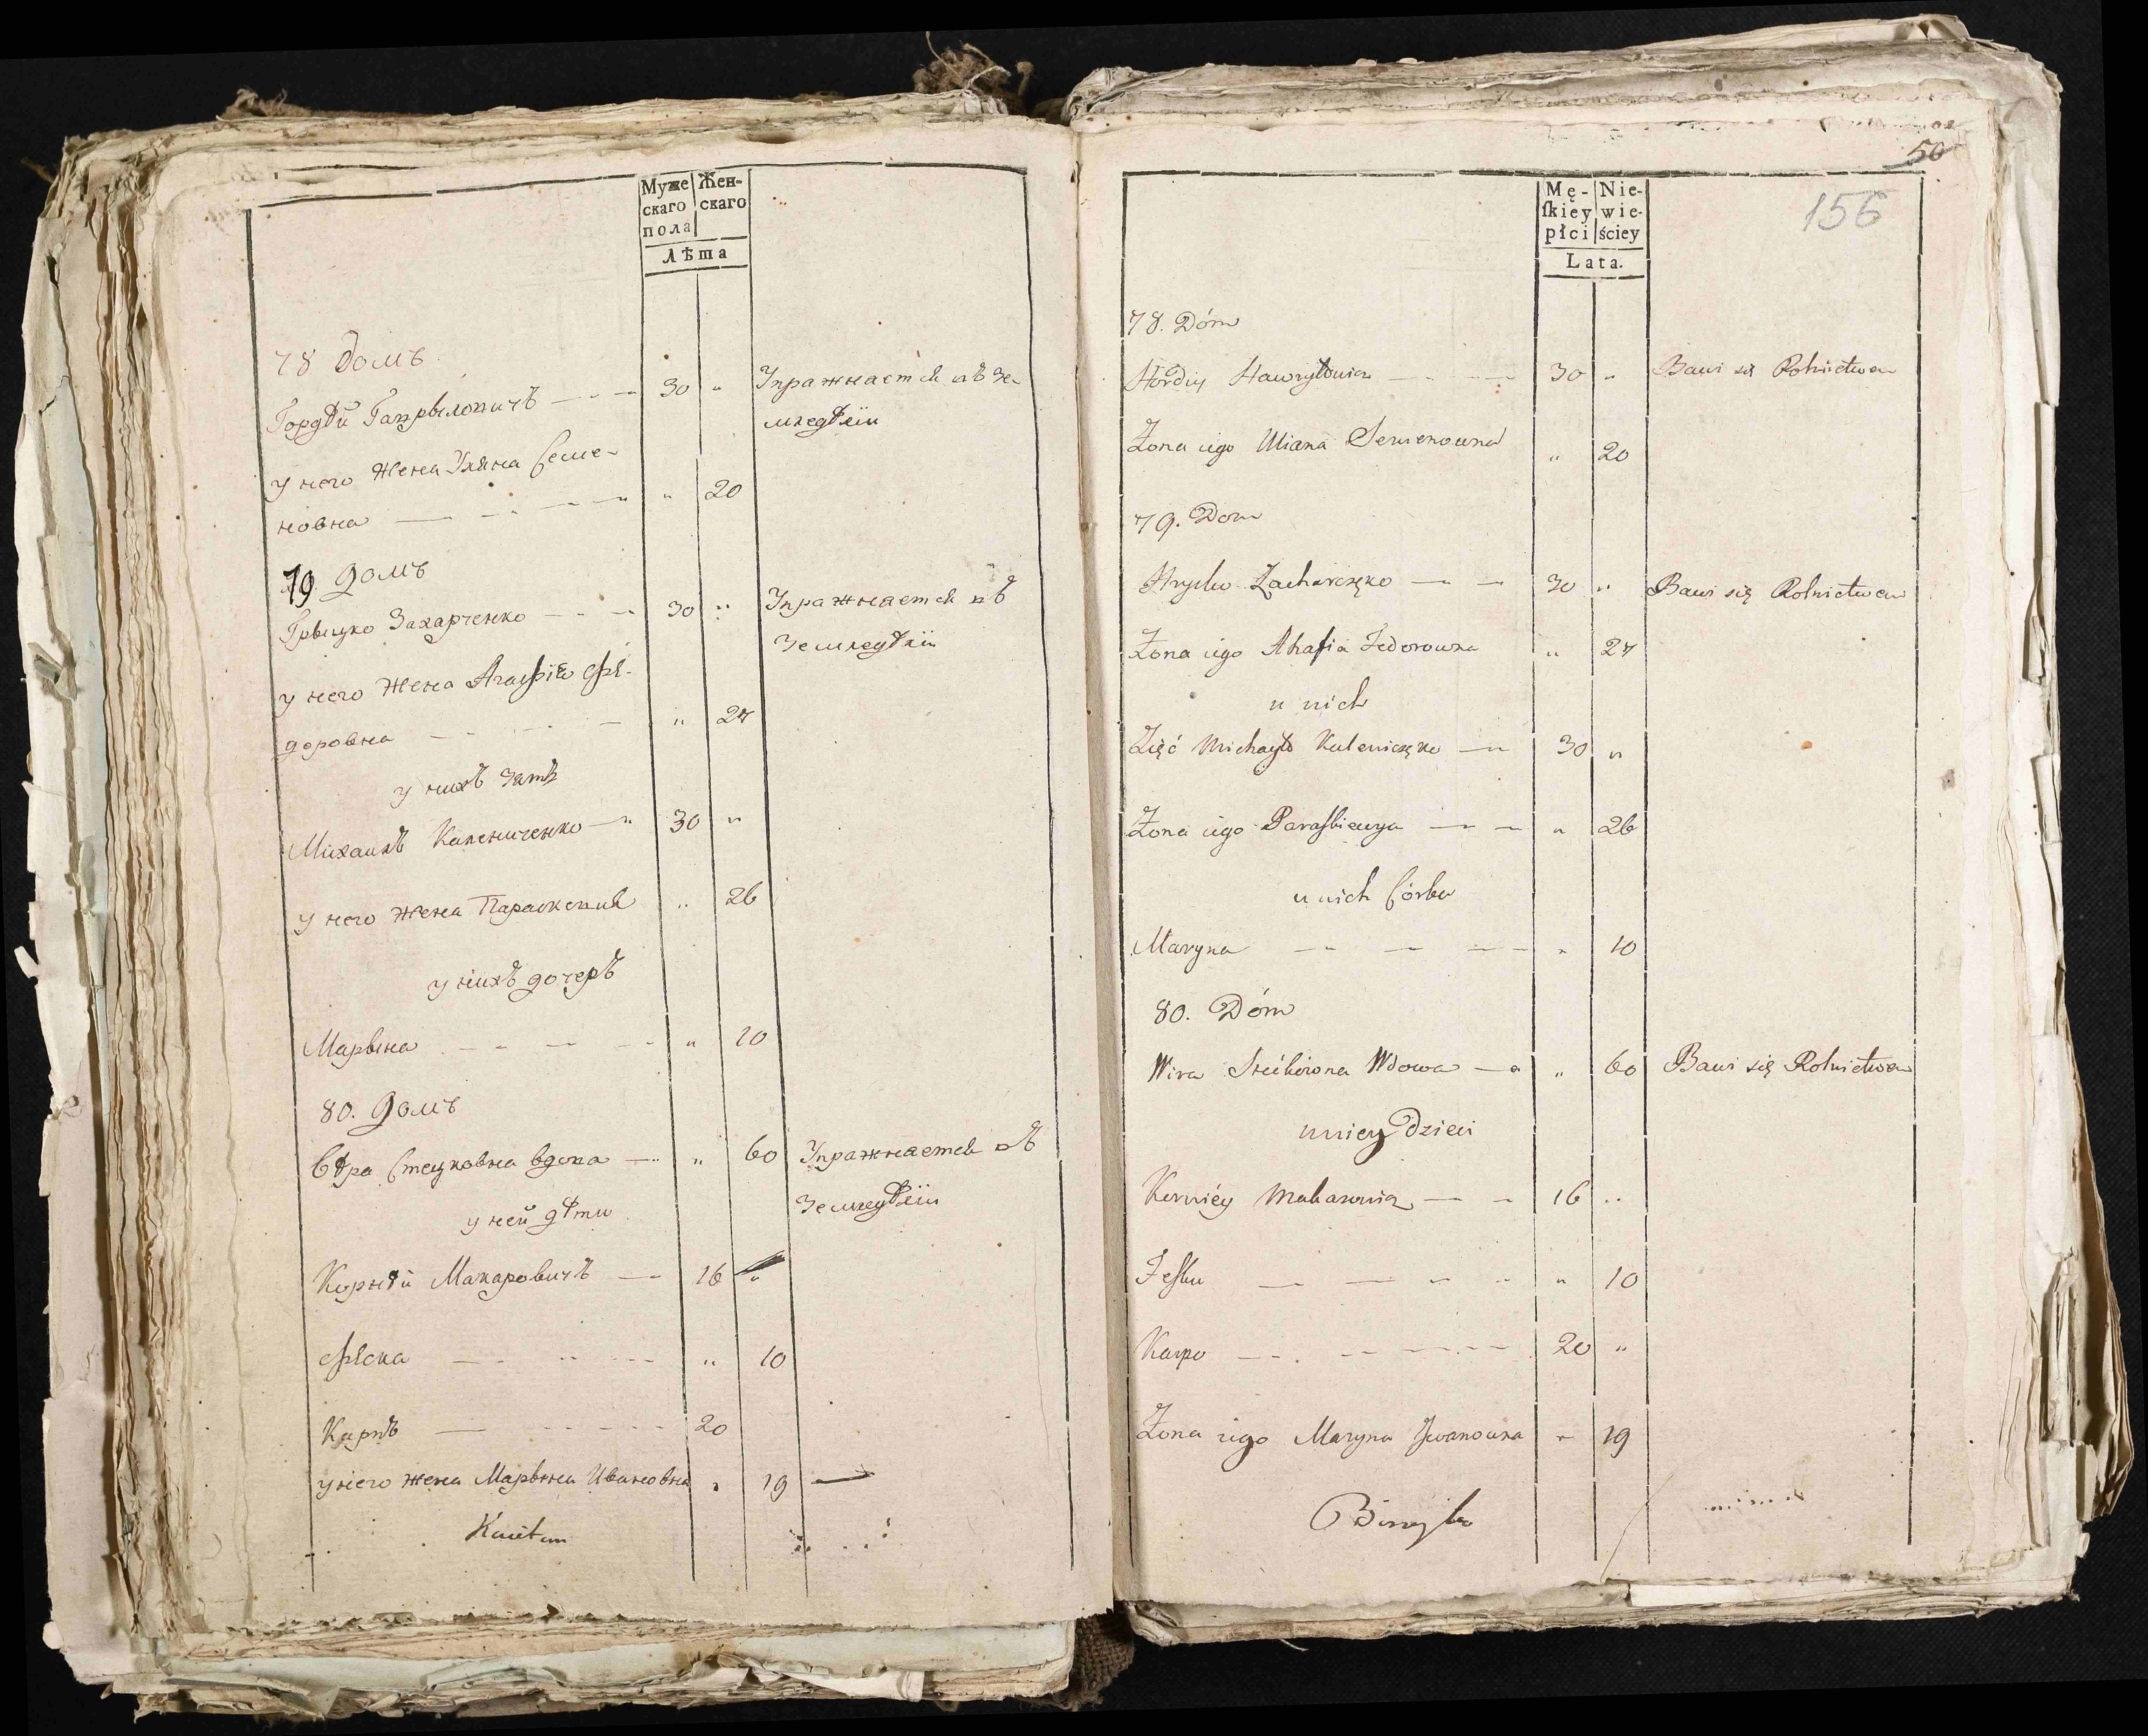 Муже Жен-
скаго скаго
пола
Лѣта
78 домъ
Гордѣй Гаврыловичъ 30 " Упражняется въ зе-
мледѣліи
у него жена Уляна Семе-
новна " 20
79 домъ
Грыцко Захарченко 30 " Упражняется въ
земледѣліи
у него жена Агафія Фе-
доровна " 27
у нихъ зять
Михаилъ Калениченко 30 "
у него жена Параскевия " 26
у нихъ дочерь
Марына " 10
80. домъ
Вѣра Стецковна вдова " 60 Упражняется въ
земледѣліи
у ней дѣти
Корнѣй Макаровичъ 16 "
Феска " 10
Карпъ 20
у него жена Марына Ивановна " 19
50
156
Mę- Nie-
ſkiey wie-
płci ściey
Lata.
78. Dóm
Hordiy Hawryłowicz 30 " Bawi się Rolnictwem
Żona iego Uliana Semenowna " 20
79. Dom
Hrycko Zacharczęko 30 " Bawi się Rolnictwem
Żona iego Ahafia Fedorowna " 27
u nich
Zięć Michayło Kaleniczęko 30 "
Żona iego Paraſkiewya " 26
u nich Córka
Maryna " 10
80. Dóm
Wira Stećkowna Wdowa " 60 Bawi się Rolnictwem
u niey Dzieci
Kerniéy Makarowicz 16 "
Feſka " 10
Karpo 20 "
Żona iego Maryna Jwanowna " 19